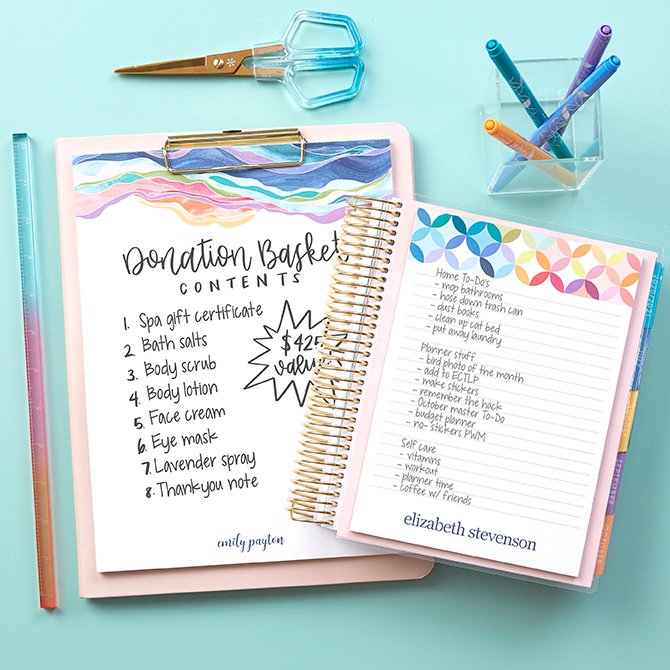 Donation Basket
CONTENTS
1. Spa gift certificate
2. Bath salts
3. Body scrub
4. Body lotion
5. Face cream
6. Eye mask
7. Lavender spray
8. Thankyou note
$425
value
emily payton
Home To-Do's
- mop bathrooms
- hose down trash can
- dust books
- clean up cat bed
- put away laundry
Planner stuff
- bird photo of the month
- add to ECTLP
- make stickers
- remember the hack
- October master To-Do
- budget planner
- no- stickers PWM
Self care
- vitamins
- workout
- planner time
- coffee w/ friends
elizabeth stevenson
2020/2021
SEPTEMBER
OCTOBER